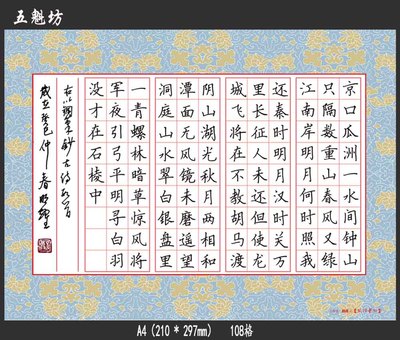 五魁坊
京口瓜洲一水间钟山
只隔数重山春风又绿
江南岸明月何时照我
还秦时明月汉时关万
里长征人未还但使龙
城飞将在不教胡马度
阴山湖光秋月两相和
潭面无风镜未磨遥望
洞庭山水翠白银盘里
一青螺林暗草惊风将
军夜引弓平明寻白羽
没才在石棱中
仲春
A4 (210 * 297mm) 108格